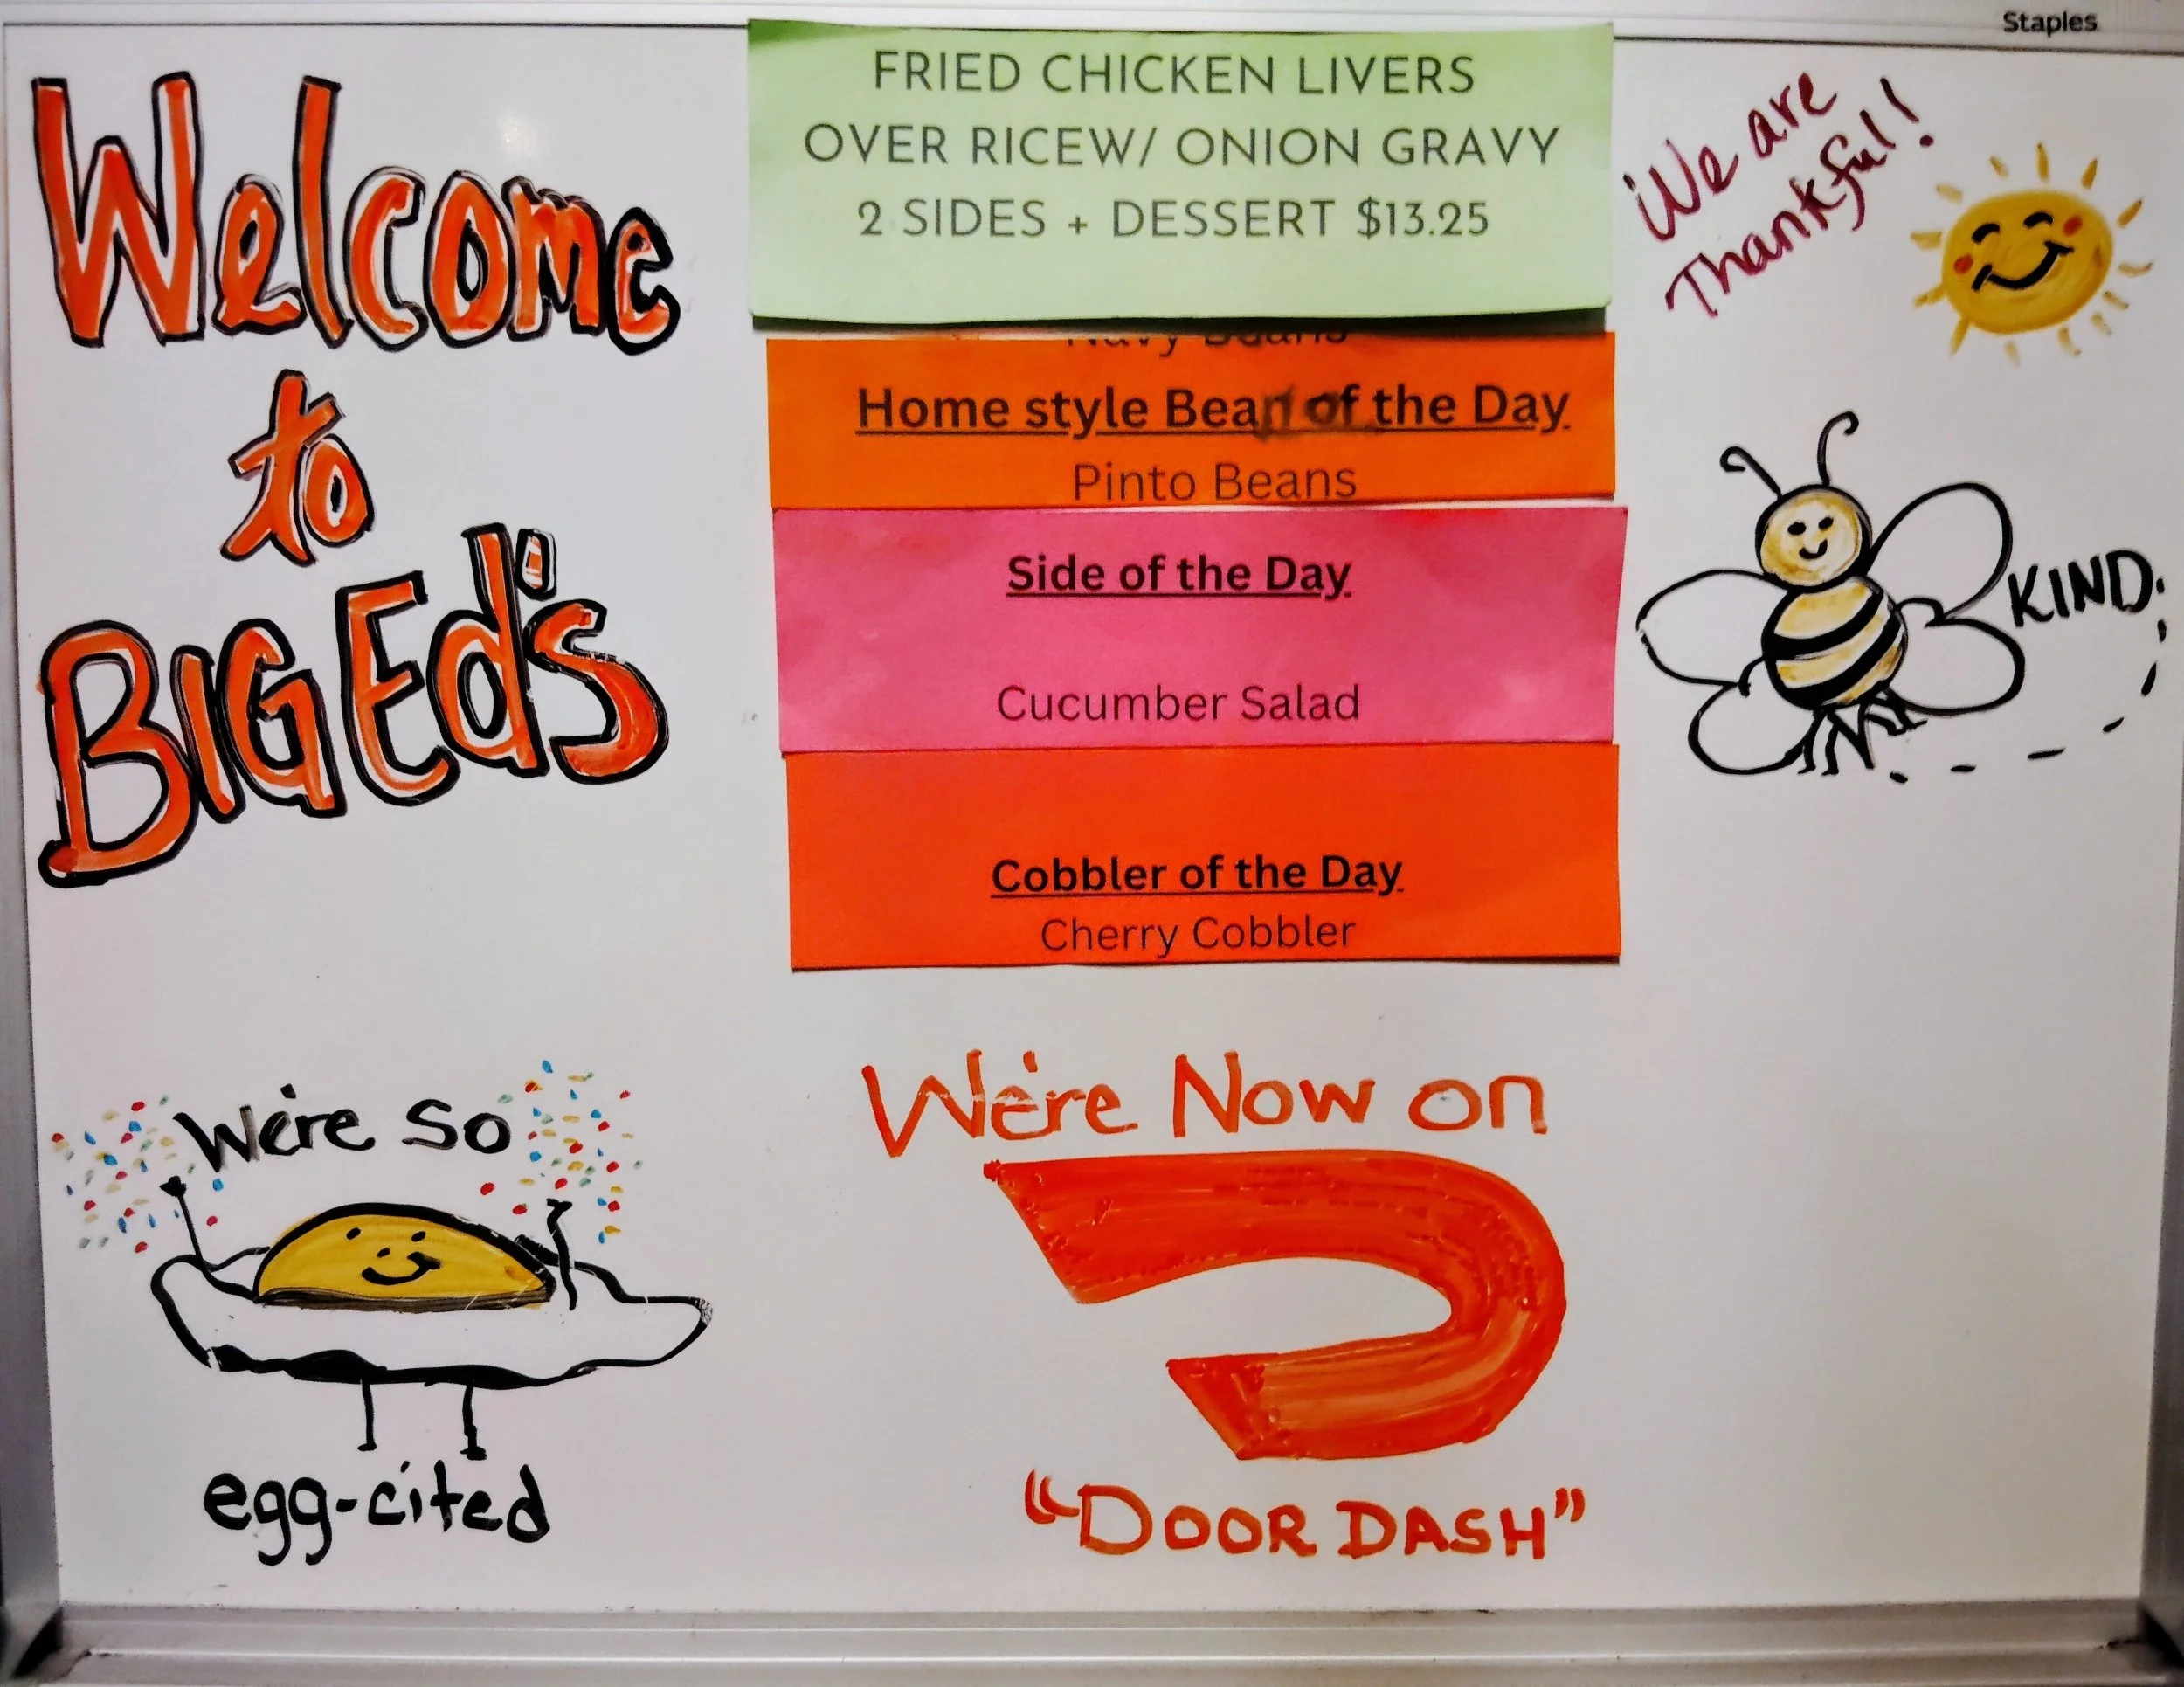 Staples
Welcome
to
BIG Ed's
FRIED CHICKEN LIVERS
OVER RICEW/ ONION GRAVY
2 SIDES + DESSERT $13.25
Navy Beans
Home style Bean of the Day
Pinto Beans
Side of the Day
Cucumber Salad
Cobbler of the Day
Cherry Cobbler
We are
Thankful!
KIND
We're so
egg-cited
We're Now on
"DOOR DASH"